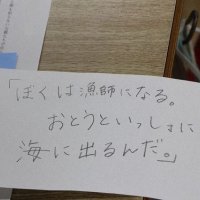 「ぼくは漁師になる。
おとうといっしょに
海に出るんだ。」